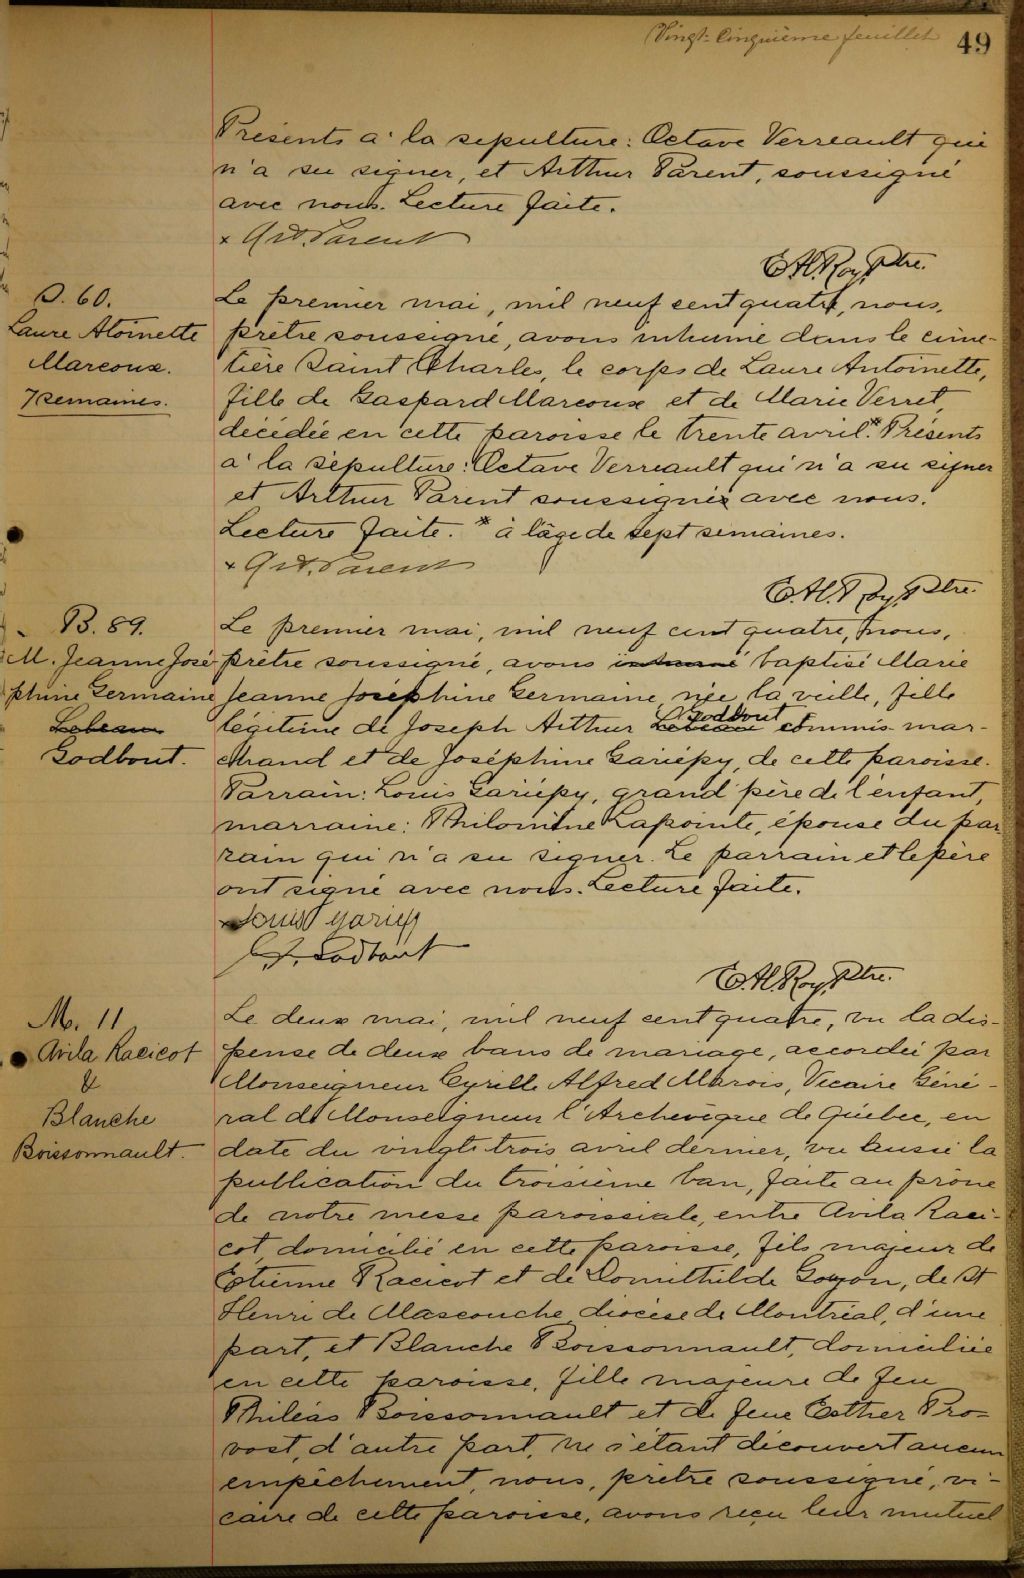 Vingt-Cinquième feuillet 49
Présents à la sepulture: Octave Verreault qui
n'a su signer, et Arthur Parent, soussigné
avec nous. Lecture faite.
x Art. Parent
E. H. Roy, Ptre.
S. 60.
Laure Atoinette
Marcoux.
7 semaines.
Le premier mai, mil neuf cent quatre, nous,
prêtre soussigné, avons inhumé dans le cime-
tière Saint Charles, le corps de Laure Antoinette,
fille de Gaspard Marcoux et de Marie Verret,
décédée en cette paroisse le trente avril.* Présents
à la sépulture: Octave Verreault qui n'a su signer
et Arthur Parent soussigné avec nous.
Lecture faite. * à l'âge de sept semaines.
x Art. Parent
E. H. Roy, Ptre.
B. 89.
M. Jeanne José
phine Germaine
Lebeau
Godbout.
Le premier mai, mil neuf cent quatre, nous,
prêtre soussigné, avons inhumé baptisé Marie
Jeanne Joséphine Germaine, née la veille, fille
légitime de Joseph Arthur Lebeau Godbout commis-mar-
chand et de Joséphine Gariépy, de cette paroisse.
Parrain: Louis Gariépy, grand père de l'enfant,
marraine: Philomène Lapointe, épouse du par-
rain qui n'a su signer. Le parrain et le père
ont signé avec nous. Lecture faite.
x Louis Gariépy
Godbout
E. H. Roy, Ptre.
M. 11
Avila Racicot
&
Blanche
Boissonnault.
Le deux mai, mil neuf cent quatre, vu la dis-
pense de deux bans de mariage, accordée par
Monseigneur Cyrille Alfred Marois, Vicaire Géné-
ral de Monseigneur l'Archevêque de Québec, en
date du vingt trois avril dernier, vu aussi la
publication du troisième ban, faite au prône
de notre messe paroissiale, entre Avila Raci-
cot, domicilié en cette paroisse, fils majeur de
Étienne Racicot et de Domithilde Goyon, de St
Henri de Mascouche, diocèse de Montréal, d'une
part, et Blanche Boissonnault, domiciliée
en cette paroisse, fille majeure de feu
Philéas Boissonnault et de feue Esther Pro-
vost, d'autre part, ne s'étant découvert aucun
empêchement, nous, prêtre soussigné, vi-
caire de cette paroisse, avons reçu leur mutuel